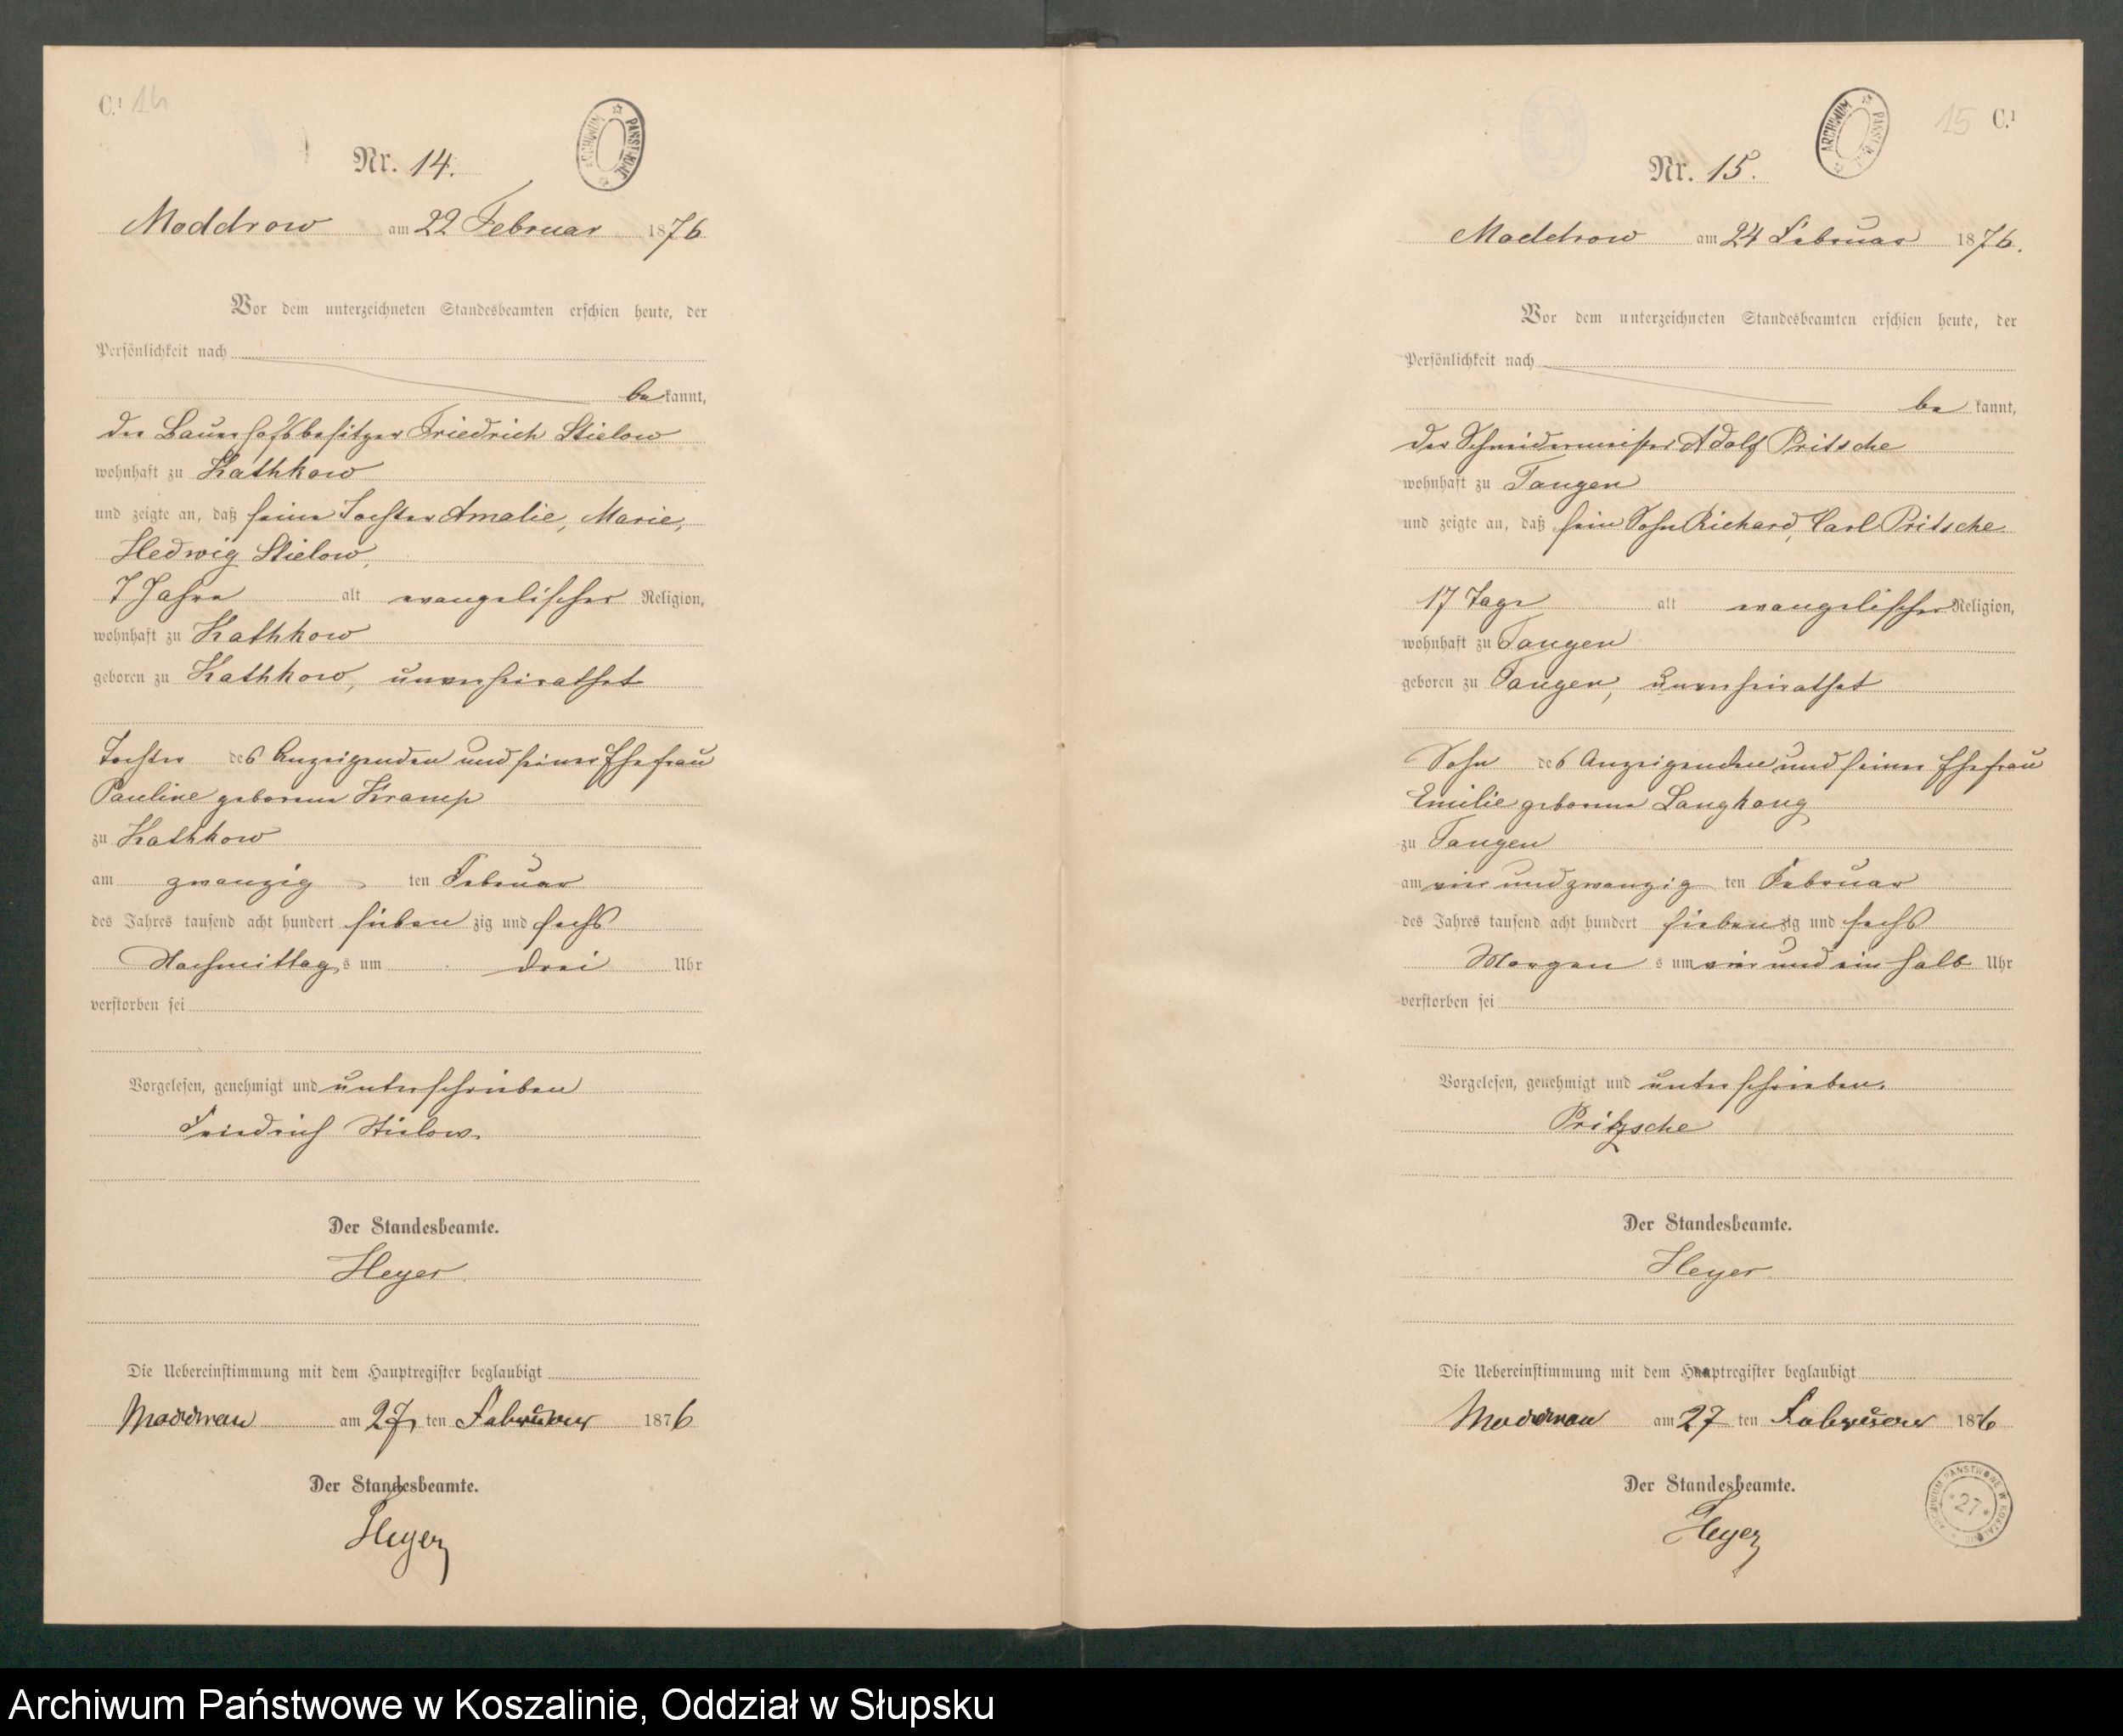 C.¹ 14
Nr. 14.
ARCHIWUM PAŃSTWOWE
Moddrow am 22 Februar 1876
Vor dem unterzeichneten Standesbeamten erschien heute, der
Persönlichkeit nach
be kannt,
der Bauerhofsbesitzer Friedrich Stielow
wohnhaft zu Kathkow
und zeigte an, daß seine Tochter Amalie, Marie,
Hedwig Stielow,
7 Jahre alt evangelischer Religion,
wohnhaft zu Kathkow
geboren zu Kathkow, unverheirathet
Tochter des Anzeigenden und seiner Ehefrau
Pauline geborene Kramp
zu Kathkow
am zwanzig ten Februar
des Jahres tausend acht hundert sieben zig und sechs
Nachmittag s um drei Uhr
verstorben sei
Vorgelesen, genehmigt und unterschrieben
Friedrich Stielow.
Der Standesbeamte.
Heyer.
Die Uebereinstimmung mit dem Hauptregister beglaubigt
Moddrow am 27 ten Februar 1876
Der Standesbeamte.
Heyer
15 C.¹
Nr. 15.
ARCHIWUM PAŃSTWOWE
Moddrow am 24 Februar 1876.
Vor dem unterzeichneten Standesbeamten erschien heute, der
Persönlichkeit nach
be kannt,
der Schneidermeister Adolf Pritsche
wohnhaft zu Tangen
und zeigte an, daß sein Sohn Richard, Carl Pritsche
17 Tage alt evangelischer Religion,
wohnhaft zu Tangen
geboren zu Tangen, unverheirathet
Sohn des Anzeigenden und seiner Ehefrau
Emilie geborene Langkang
zu Tangen
am vier und zwanzig ten Februar
des Jahres tausend acht hundert sieben zig und sechs
Morgen s um vier und ein halb Uhr
verstorben sei
Vorgelesen, genehmigt und unterschrieben.
Pritzsche
Der Standesbeamte.
Heyer.
Die Uebereinstimmung mit dem Hauptregister beglaubigt
Moddrow am 27 ten Februar 1876
Der Standesbeamte.
Heyer
ARCHIWUM PAŃSTWOWE W KOSZALINIE
* 27 *
Archiwum Państwowe w Koszalinie, Oddział w Słupsku